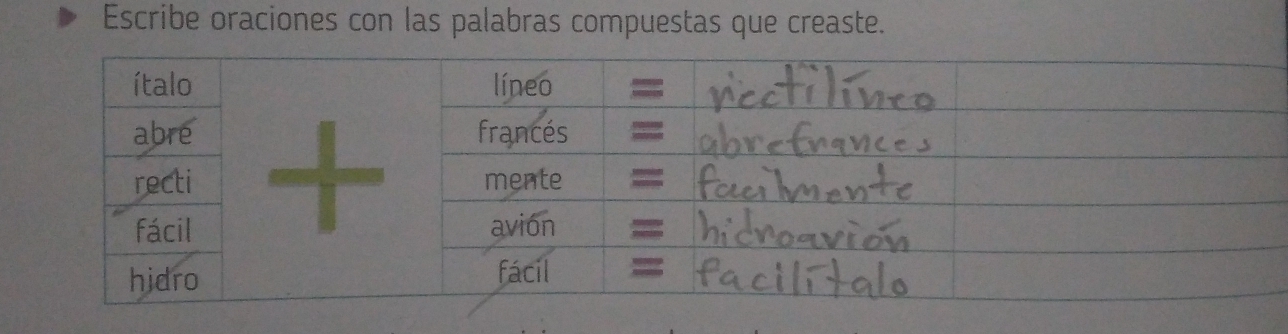 Escribe oraciones con las palabras compuestas que creaste.
ítalo + líneo = rectilíneo
abre francés = abrefrances
recti mente = facilmente
fácil avión = hidroavión
hidro fácil = facilítalo